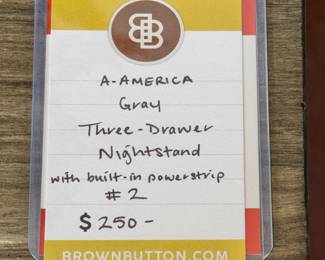 BB
A-AMERICA
Gray
Three-Drawer
Nightstand
with built-in powerstrip
# 2
$ 250-
BROWNBUTTON.COM